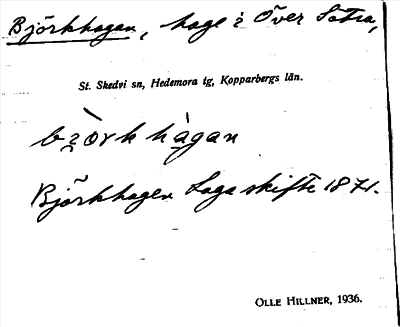 Björkhagen, hage i Över Sätra,
St. Skedvi sn, Hedemora tg, Kopparbergs län.
bi̯òrkhàgan
Björkhagen Laga skifte 1871.
OLLE HILLNER, 1936.